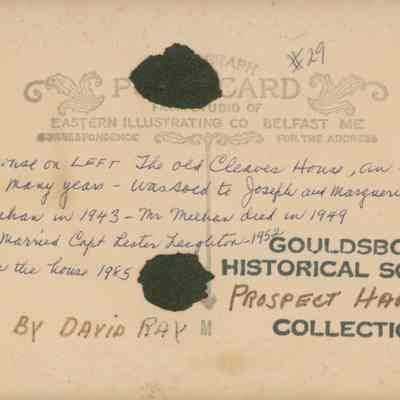 #29
GRAPH
PO CARD
STUDIO OF
EASTERN ILLUSTRATING CO BELFAST ME
CORRESPONDENCE FOR THE ADDRESS
House on LEFT The old Cleaves House, an
many years - was sold to Joseph and Margueri
han in 1943 - Mr Meehan died in 1949
Married Capt Lester Leighton - 1952
the house 1985
GOULDSBO
HISTORICAL SO
PROSPECT HA
COLLECTIO
BY DAVID RAY M